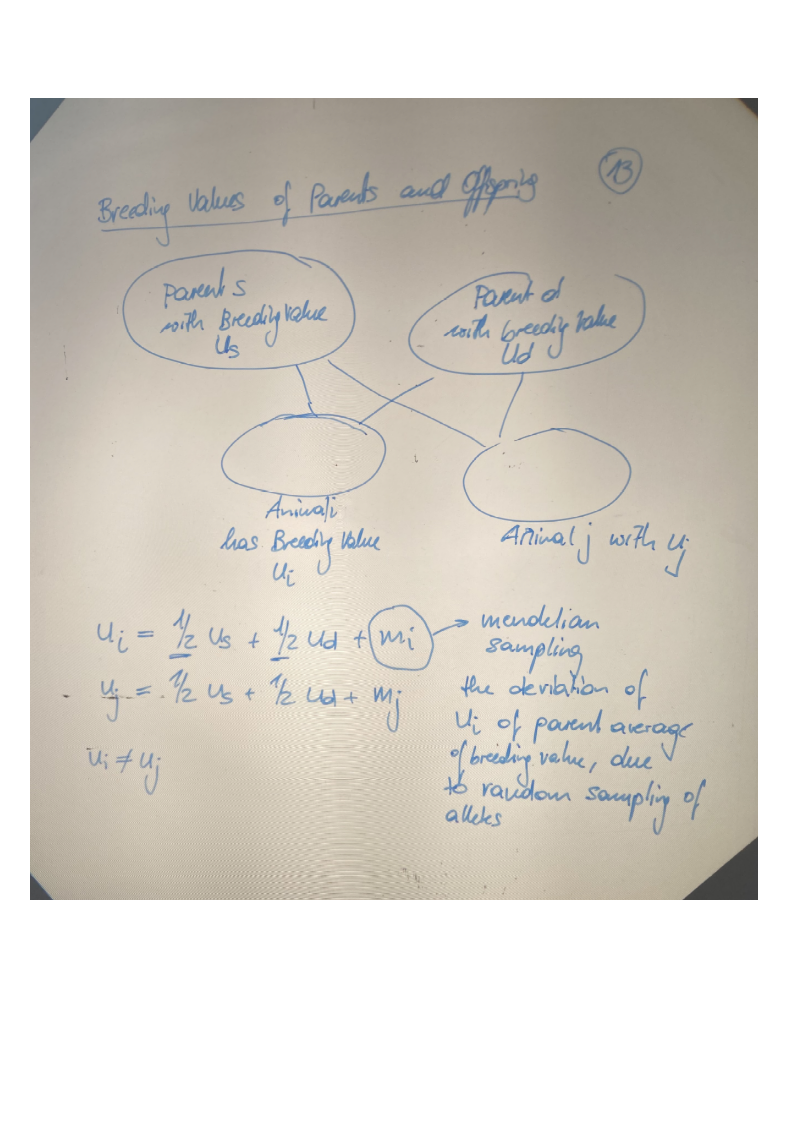 13
Breeding Values of Parents and Offspring
Parent s
with Breeding Value
us
Parent d
with breeding Value
ud
Animal i
has Breeding Value
ui
Animal j with uj
ui = 1/2 us + 1/2 ud + mi → mendelian
sampling
uj = 1/2 us + 1/2 ud + mj
the deviation of
ui of parent average
of breeding value, due
to random sampling of
alleles
ui ≠ uj